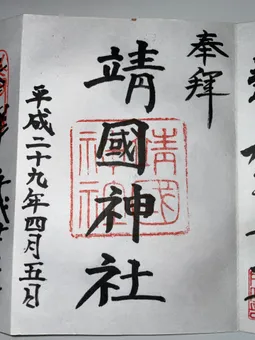 奉拝
靖國神社
平成二十九年四月五日
靖国神社